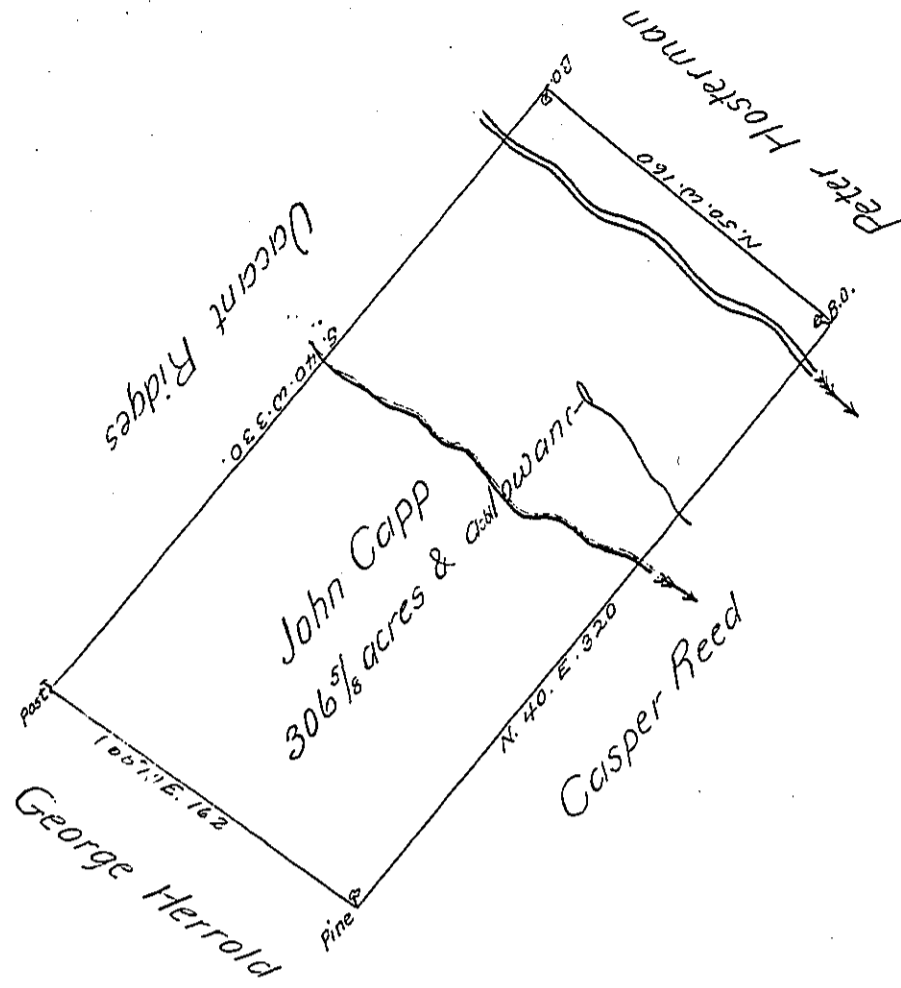 Peter Hosterman
B.O.
N. 50. W. 160
B.O.
Vacant Ridges
S. 40. W. 330.
John Capp
306 5/8 acres & allowance
N. 40. E. 320
Casper Reed
Post
E. 162
George Herrold
Pine